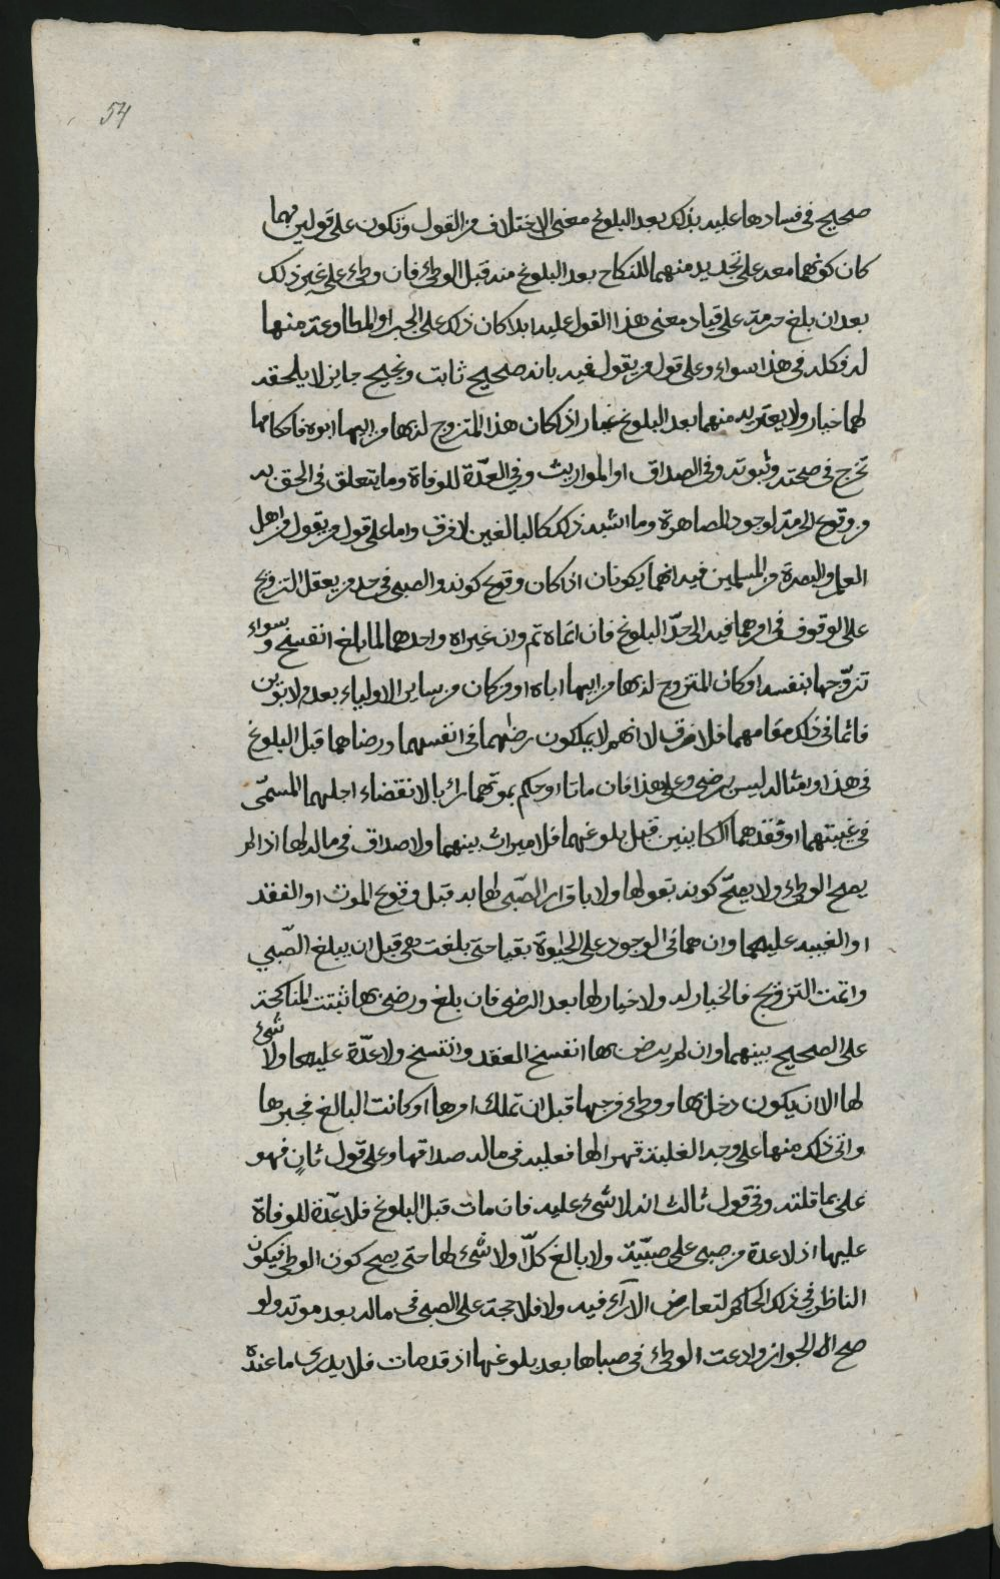 54
صحيح في فسادها عليه بذلك بعد البلوغ معنى الاختلاف من القول وتكون على قولين فيما
كان كونهما معه على تجديد منهما للنكاح بعد البلوغ منه قبل الوطئ فان وطئ على غير ذلك
بعد ان بلغ حرمت على قياد معنى هذا القول عليه ابدا كان ذلك على الجبر او المطاوعة منها
له فكله في هذا سواء وعلى قول من يقول فيه بانه صحيح ثابت ونجيح جايز لا يلحقه
لهما خيار ولا يعتريه منهما بعد البلوغ غيار اذا كان هذا المتزوج له بها من ابيها ابوه فاحكامها
تخرج في صحته وثبوته وفي الصداق او المواريث وفي العدّة للوفاة وما يتعلق في الحق به
من وقوع الحرمة لوجود المصاهرة وما اشبه ذلك كالبالغين لا فرق واما على قول من يقول من اهل
العلم والبصرة من المسلمين فيه انهما يكونان اذا كان وقوع كونه والصبي في حد من يعقل التزويج
على الوقوف في امرهما فيه الى حدّ البلوغ فان اتماه تم وان غيراه واحدهما لما بلغ انفسخ وسواء
تزوّجها بنفسه او كان المتزوج له بها من ابيها اباه او من كان من ساير الاولياء بعده لا بوين
قائما في ذلك مقامهما فلا فرق لانهم لا يملكون رضاهما في انفسهما ورضاهما قبل البلوغ
في هذا وامثاله ليس برضى وعلى هذا فان ماتا او حكم بموتهما رايا لانقضاء اجلهما المسمّى
في غيبتهما او فقدهما الكاينين قبل بلوغهما فلا ميراث بينهما ولا صداق في ماله لها اذا لم
يصح الوطئ ولا يصحّ كونه بقولها ولا باقرار الصّبي لها به قبل وقوع الموت او الفقد
او الغيبه عليهما وان هما في الوجود على الحياة بقيا حتى بلغت هي قبل ان يبلغ الصّبي
واتمت التزويج فالخيار له ولا خيار لها بعد الرضى فان بلغ ورضي بها ثبتت المناكحة
على الصحيح بينهما وان لم يرض بها انفسخ العقد وانفسخ ولا عدّة عليها ولا شئ
لها الا ان يكون دخل بها ووطئ فرجها قبل ان تملك امرها او كانت البالغ فجبرها
واتى ذلك منها على وجه الغلبة قهرا لها فعليه في ماله صداقها وعلى قول ثانٍ فهو
على بما قلته وفي قول ثالث انه لا شئ عليه فان مات قبل البلوغ فلا عدّة للوفاة
عليها اذ لا عدة من صبي على صبيّة ولا بالغ كلّا ولا شئ لها حتى يصح كون الوطئ فيكون
الناظر في ذلك الحاكم لتعارض الآراء فيه والا فلا حجة على الصبي في ماله بعد موته ولو
صح الا الجواز وادعت الوطئ في صباها بعد بلوغها اذ قد مات فلا يدرى ما عنده